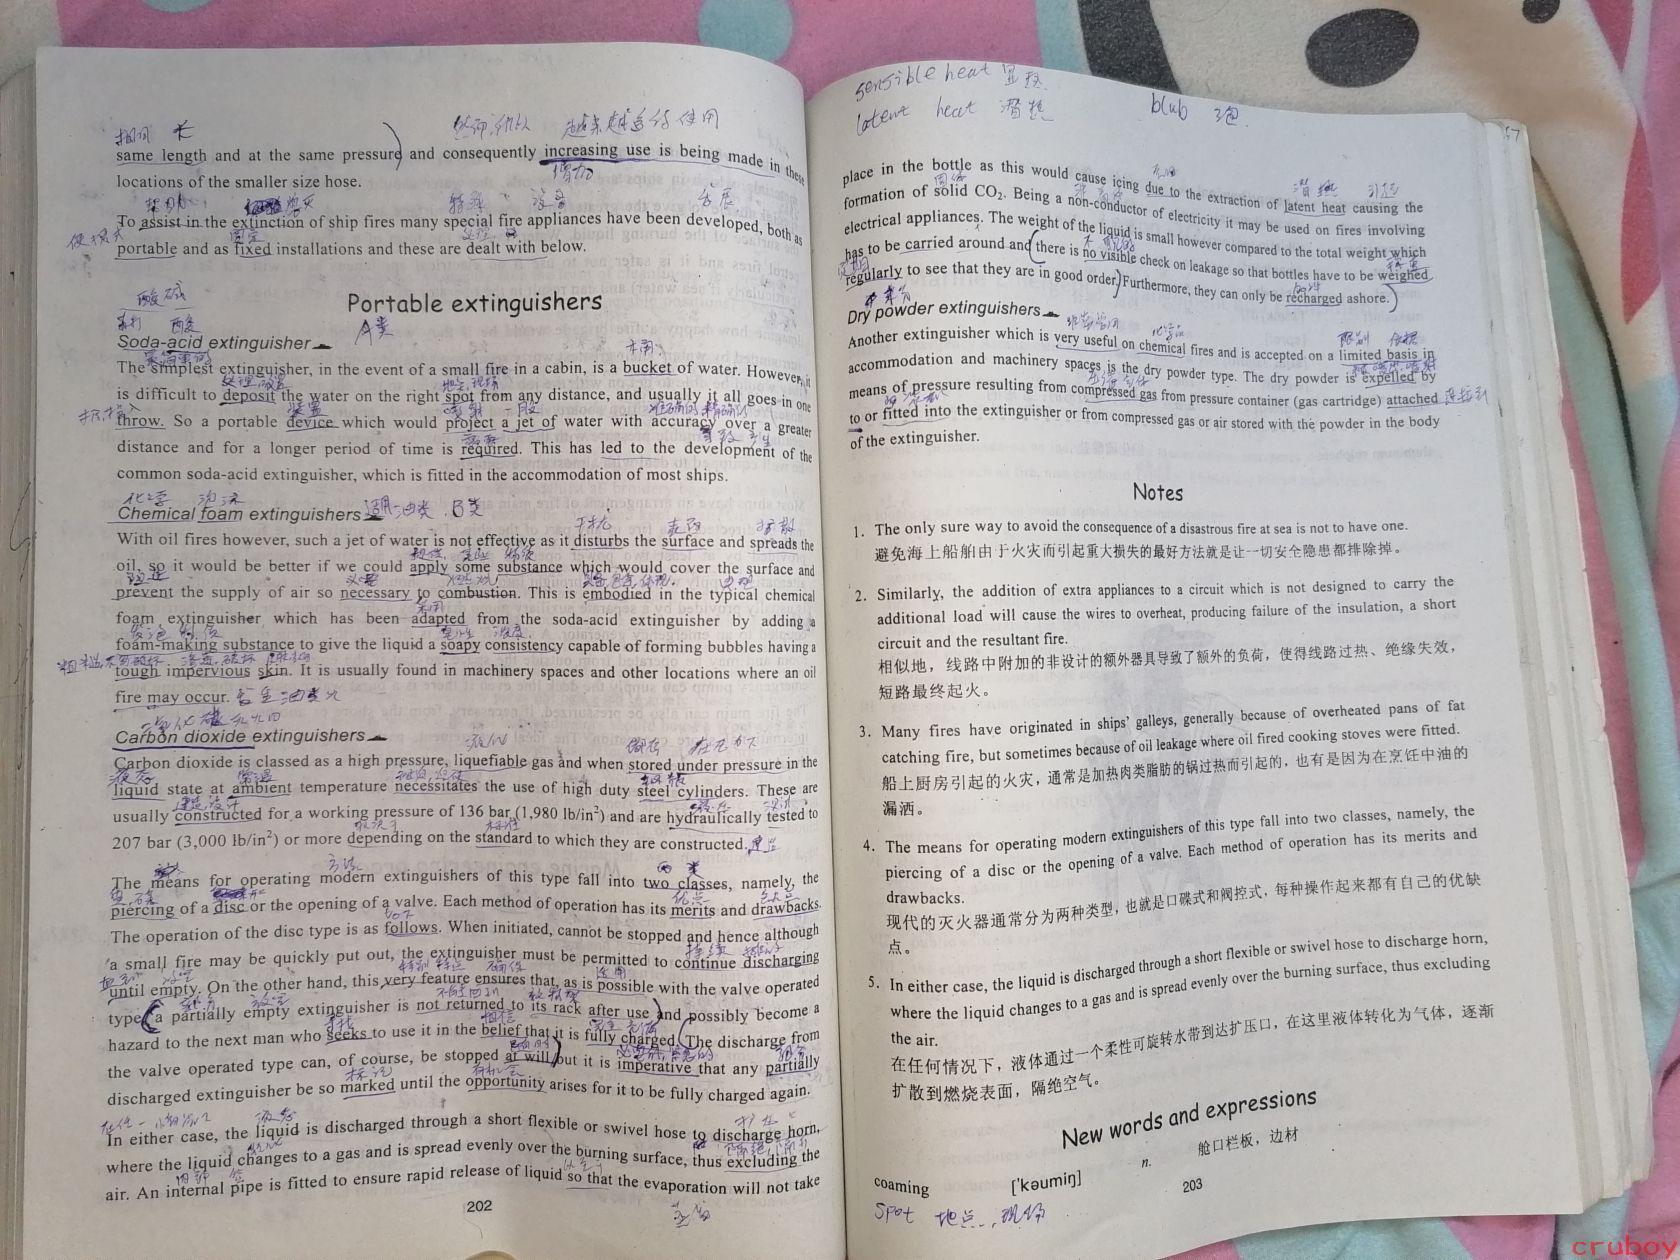 same length and at the same pressure) and consequently increasing use is being made in these
locations of the smaller size hose.
To assist in the extinction of ship fires many special fire appliances have been developed, both as
portable and as fixed installations and these are dealt with below.
Portable extinguishers
酸碱
A类
Soda-acid extinguisher
The simplest extinguisher, in the event of a small fire in a cabin, is a bucket of water. However, it
is difficult to deposit the water on the right spot from any distance, and usually it all goes in one
throw. So a portable device which would project a jet of water with accuracy over a greater
distance and for a longer period of time is required. This has led to the development of the
common soda-acid extinguisher, which is fitted in the accommodation of most ships.
化学 泡沫
Chemical foam extinguishers 适用油类 B类
With oil fires however, such a jet of water is not effective as it disturbs the surface and spreads the
oil, so it would be better if we could apply some substance which would cover the surface and
prevent the supply of air so necessary to combustion. This is embodied in the typical chemical
foam extinguisher which has been adapted from the soda-acid extinguisher by adding a
foam-making substance to give the liquid a soapy consistency capable of forming bubbles having a
tough impervious skin. It is usually found in machinery spaces and other locations where an oil
fire may occur.
Carbon dioxide extinguishers
Carbon dioxide is classed as a high pressure, liquefiable gas and when stored under pressure in the
liquid state at ambient temperature necessitates the use of high duty steel cylinders. These are
usually constructed for a working pressure of 136 bar (1,980 lb/in²) and are hydraulically tested to
207 bar (3,000 lb/in²) or more depending on the standard to which they are constructed.
The means for operating modern extinguishers of this type fall into two classes, namely, the
piercing of a disc or the opening of a valve. Each method of operation has its merits and drawbacks.
The operation of the disc type is as follows. When initiated, cannot be stopped and hence although
a small fire may be quickly put out, the extinguisher must be permitted to continue discharging
until empty. On the other hand, this very feature ensures that, as is possible with the valve operated
type, a partially empty extinguisher is not returned to its rack after use and possibly become a
hazard to the next man who seeks to use it in the belief that it is fully charged. The discharge from
the valve operated type can, of course, be stopped at will but it is imperative that any partially
discharged extinguisher be so marked until the opportunity arises for it to be fully charged again.
In either case, the liquid is discharged through a short flexible or swivel hose to discharge horn,
where the liquid changes to a gas and is spread evenly over the burning surface, thus excluding the
air. An internal pipe is fitted to ensure rapid release of liquid so that the evaporation will not take
202
sensible heat 显热
latent heat 潜热
blub 泡
57
place in the bottle as this would cause icing due to the extraction of latent heat causing the
formation of solid CO₂. Being a non-conductor of electricity it may be used on fires involving
electrical appliances. The weight of the liquid is small however compared to the total weight which
has to be carried around and there is no visible check on leakage so that bottles have to be weighed
regularly to see that they are in good order. Furthermore, they can only be recharged ashore.
Dry powder extinguishers
Another extinguisher which is very useful on chemical fires and is accepted on a limited basis in
accommodation and machinery spaces is the dry powder type. The dry powder is expelled by
means of pressure resulting from compressed gas from pressure container (gas cartridge) attached 连接到
to or fitted into the extinguisher or from compressed gas or air stored with the powder in the body
of the extinguisher.
Notes
1. The only sure way to avoid the consequence of a disastrous fire at sea is not to have one.
避免海上船舶由于火灾而引起重大损失的最好方法就是让一切安全隐患都排除掉。
2. Similarly, the addition of extra appliances to a circuit which is not designed to carry the
additional load will cause the wires to overheat, producing failure of the insulation, a short
circuit and the resultant fire.
相似地，线路中附加的非设计的额外器具导致了额外的负荷，使得线路过热、绝缘失效，
短路最终起火。
3. Many fires have originated in ships' galleys, generally because of overheated pans of fat
catching fire, but sometimes because of oil leakage where oil fired cooking stoves were fitted.
船上厨房引起的火灾，通常是加热肉类脂肪的锅过热而引起的，也有是因为在烹饪中油的
漏洒。
4. The means for operating modern extinguishers of this type fall into two classes, namely, the
piercing of a disc or the opening of a valve. Each method of operation has its merits and
drawbacks.
现代的灭火器通常分为两种类型，也就是口碟式和阀控式，每种操作起来都有自己的优缺
点。
5. In either case, the liquid is discharged through a short flexible or swivel hose to discharge horn,
where the liquid changes to a gas and is spread evenly over the burning surface, thus excluding
the air.
在任何情况下，液体通过一个柔性可旋转水带到达扩压口，在这里液体转化为气体，逐渐
扩散到燃烧表面，隔绝空气。
New words and expressions
coaming ['kəumiŋ] n. 舱口栏板，边材
203
spot 地点，现场
cruboy